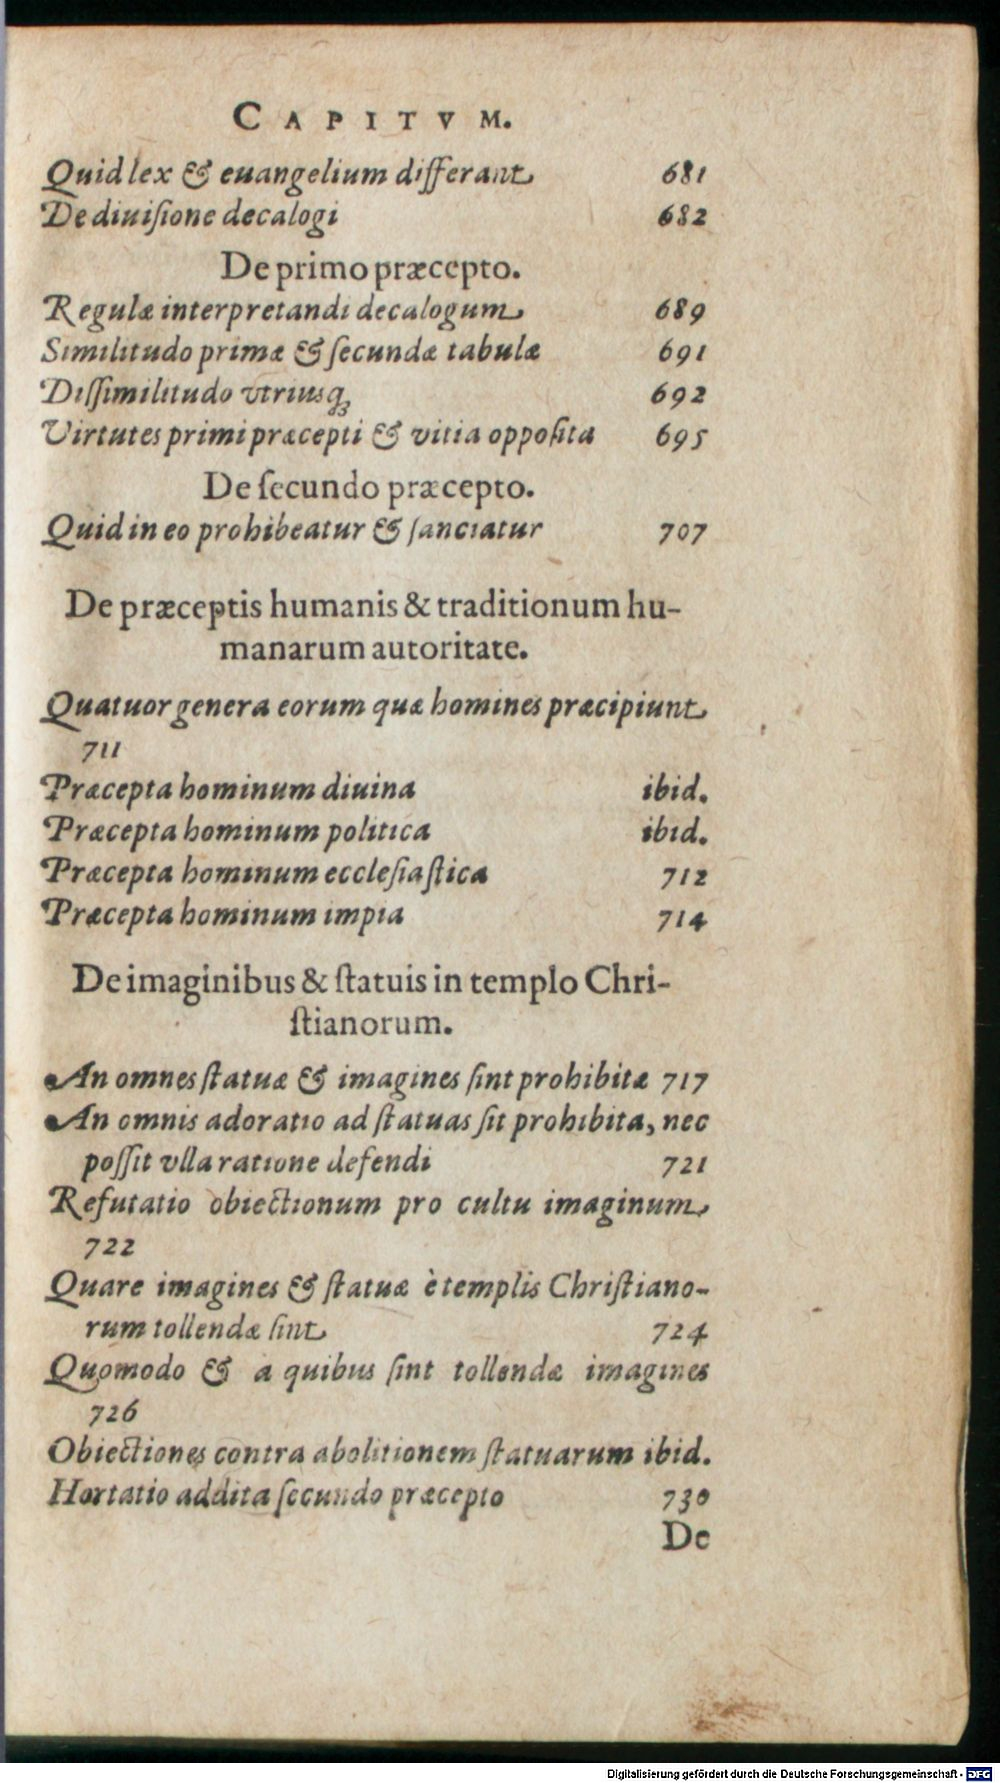 CAPITVM.
Quid lex & euangelium differant 681
De diuiſione decalogi 682
De primo præcepto.
Regulæ interpretandi decalogum 689
Similitudo primæ & ſecundæ tabulæ 691
Diſſimilitudo vtriusq; 692
Virtutes primi præcepti & vitia oppoſita 695
De ſecundo præcepto.
Quid in eo prohibeatur & ſanciatur 707
De præceptis humanis & traditionum hu-
manarum autoritate.
Quatuor genera eorum quæ homines præcipiunt
711
Præcepta hominum diuina ibid.
Præcepta hominum politica ibid.
Præcepta hominum eccleſiaſtica 712
Præcepta hominum impia 714
De imaginibus & ſtatuis in templo Chri-
ſtianorum.
An omnes ſtatuæ & imagines ſint prohibitæ 717
An omnis adoratio ad ſtatuas ſit prohibita, nec
poſſit vlla ratione defendi 721
Refutatio obiectionum pro cultu imaginum
722
Quare imagines & ſtatuæ è templis Chriſtiano-
rum tollendæ ſint 724
Quomodo & a quibus ſint tollendæ imagines
726
Obiectiones contra abolitionem ſtatuarum ibid.
Hortatio addita ſecundo præcepto 730
De
Digitalisierung gefördert durch die Deutsche Forschungsgemeinschaft - DFG